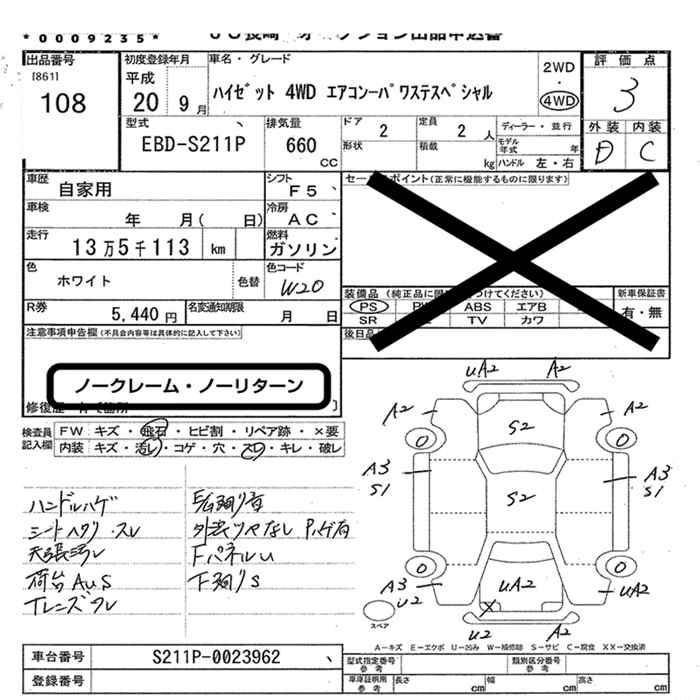 *0009235*
出品番号
[861]
108
初度登録年月
平成
20 9月
車名・グレード
ハイゼット 4WD エアコンーパワステスペシャル
2WD
・
4WD
評価点
3
外装 内装
D C
型式
EBD-S211P
排気量
660
CC
ドア 2
定員 2 人
ディーラー・並行
形状
積載 kg
モデル年式 年
ハンドル 左・右
車歴
自家用
シフト
F5
セールスポイント(正常に機能するものに限ります)
車検
年 月( 日)
冷房
AC
走行
13万5千113 km
燃料
ガソリン
色
ホワイト
色替
色コード
W20
装備品
PS ABS エアB
SR TV カワ
新車保証書
有・無
R券
5,440円
名変通知期限
月 日
後日品
注意事項申告欄(不具合内容等は具体的に記入して下さい)
ノークレーム・ノーリターン
検査員
記入欄
FW キズ・飛石・ヒビ割・リペア跡・×要
内装 キズ・汚レ・コゲ・穴・スレ・キレ・破レ
ハンドルハゲ
シートヘタリ・スレ
天張汚レ
荷台AUS
Fパネルu
下廻りS
uA2 A2
A2 A2
S2
0 0
A3 S1
S2
A3 S1
0 0
A3 U2
uA2
uA2
スペア
U2 A2
A−キズ E−エクボ U−凹み W−補修跡 S−サビ C−腐食 XX−交換済
車台番号
S211P-0023962
登録番号
型式指定番号
参考
類別区分番号
参考
車庫証明用
参考
長さ cm
幅 cm
高さ cm